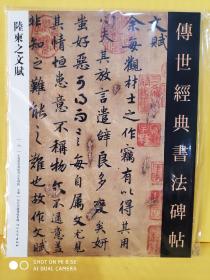 傳世經典書法碑帖
文賦
余每觀材士之作竊有以得其用
心夫其放言遣辭良多變矣妍
蚩好惡可得而言每自屬文尤見
其情恒患意不稱物文不逮意盖
非知之難能之難也故作文賦
陸柬之文賦